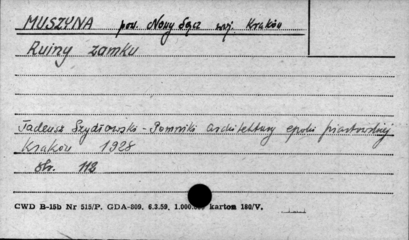 MUSZYNA pow. Nowy Sącz woj. Kraków
Ruiny zamku
Tadeusz Szydłowski - Pomniki architektury epoki piastowskiej
Kraków 1928
str. 113
CWD B-15b Nr 515/P. GDA-809. 6.3.59. 1.000.000 karton 180/V.